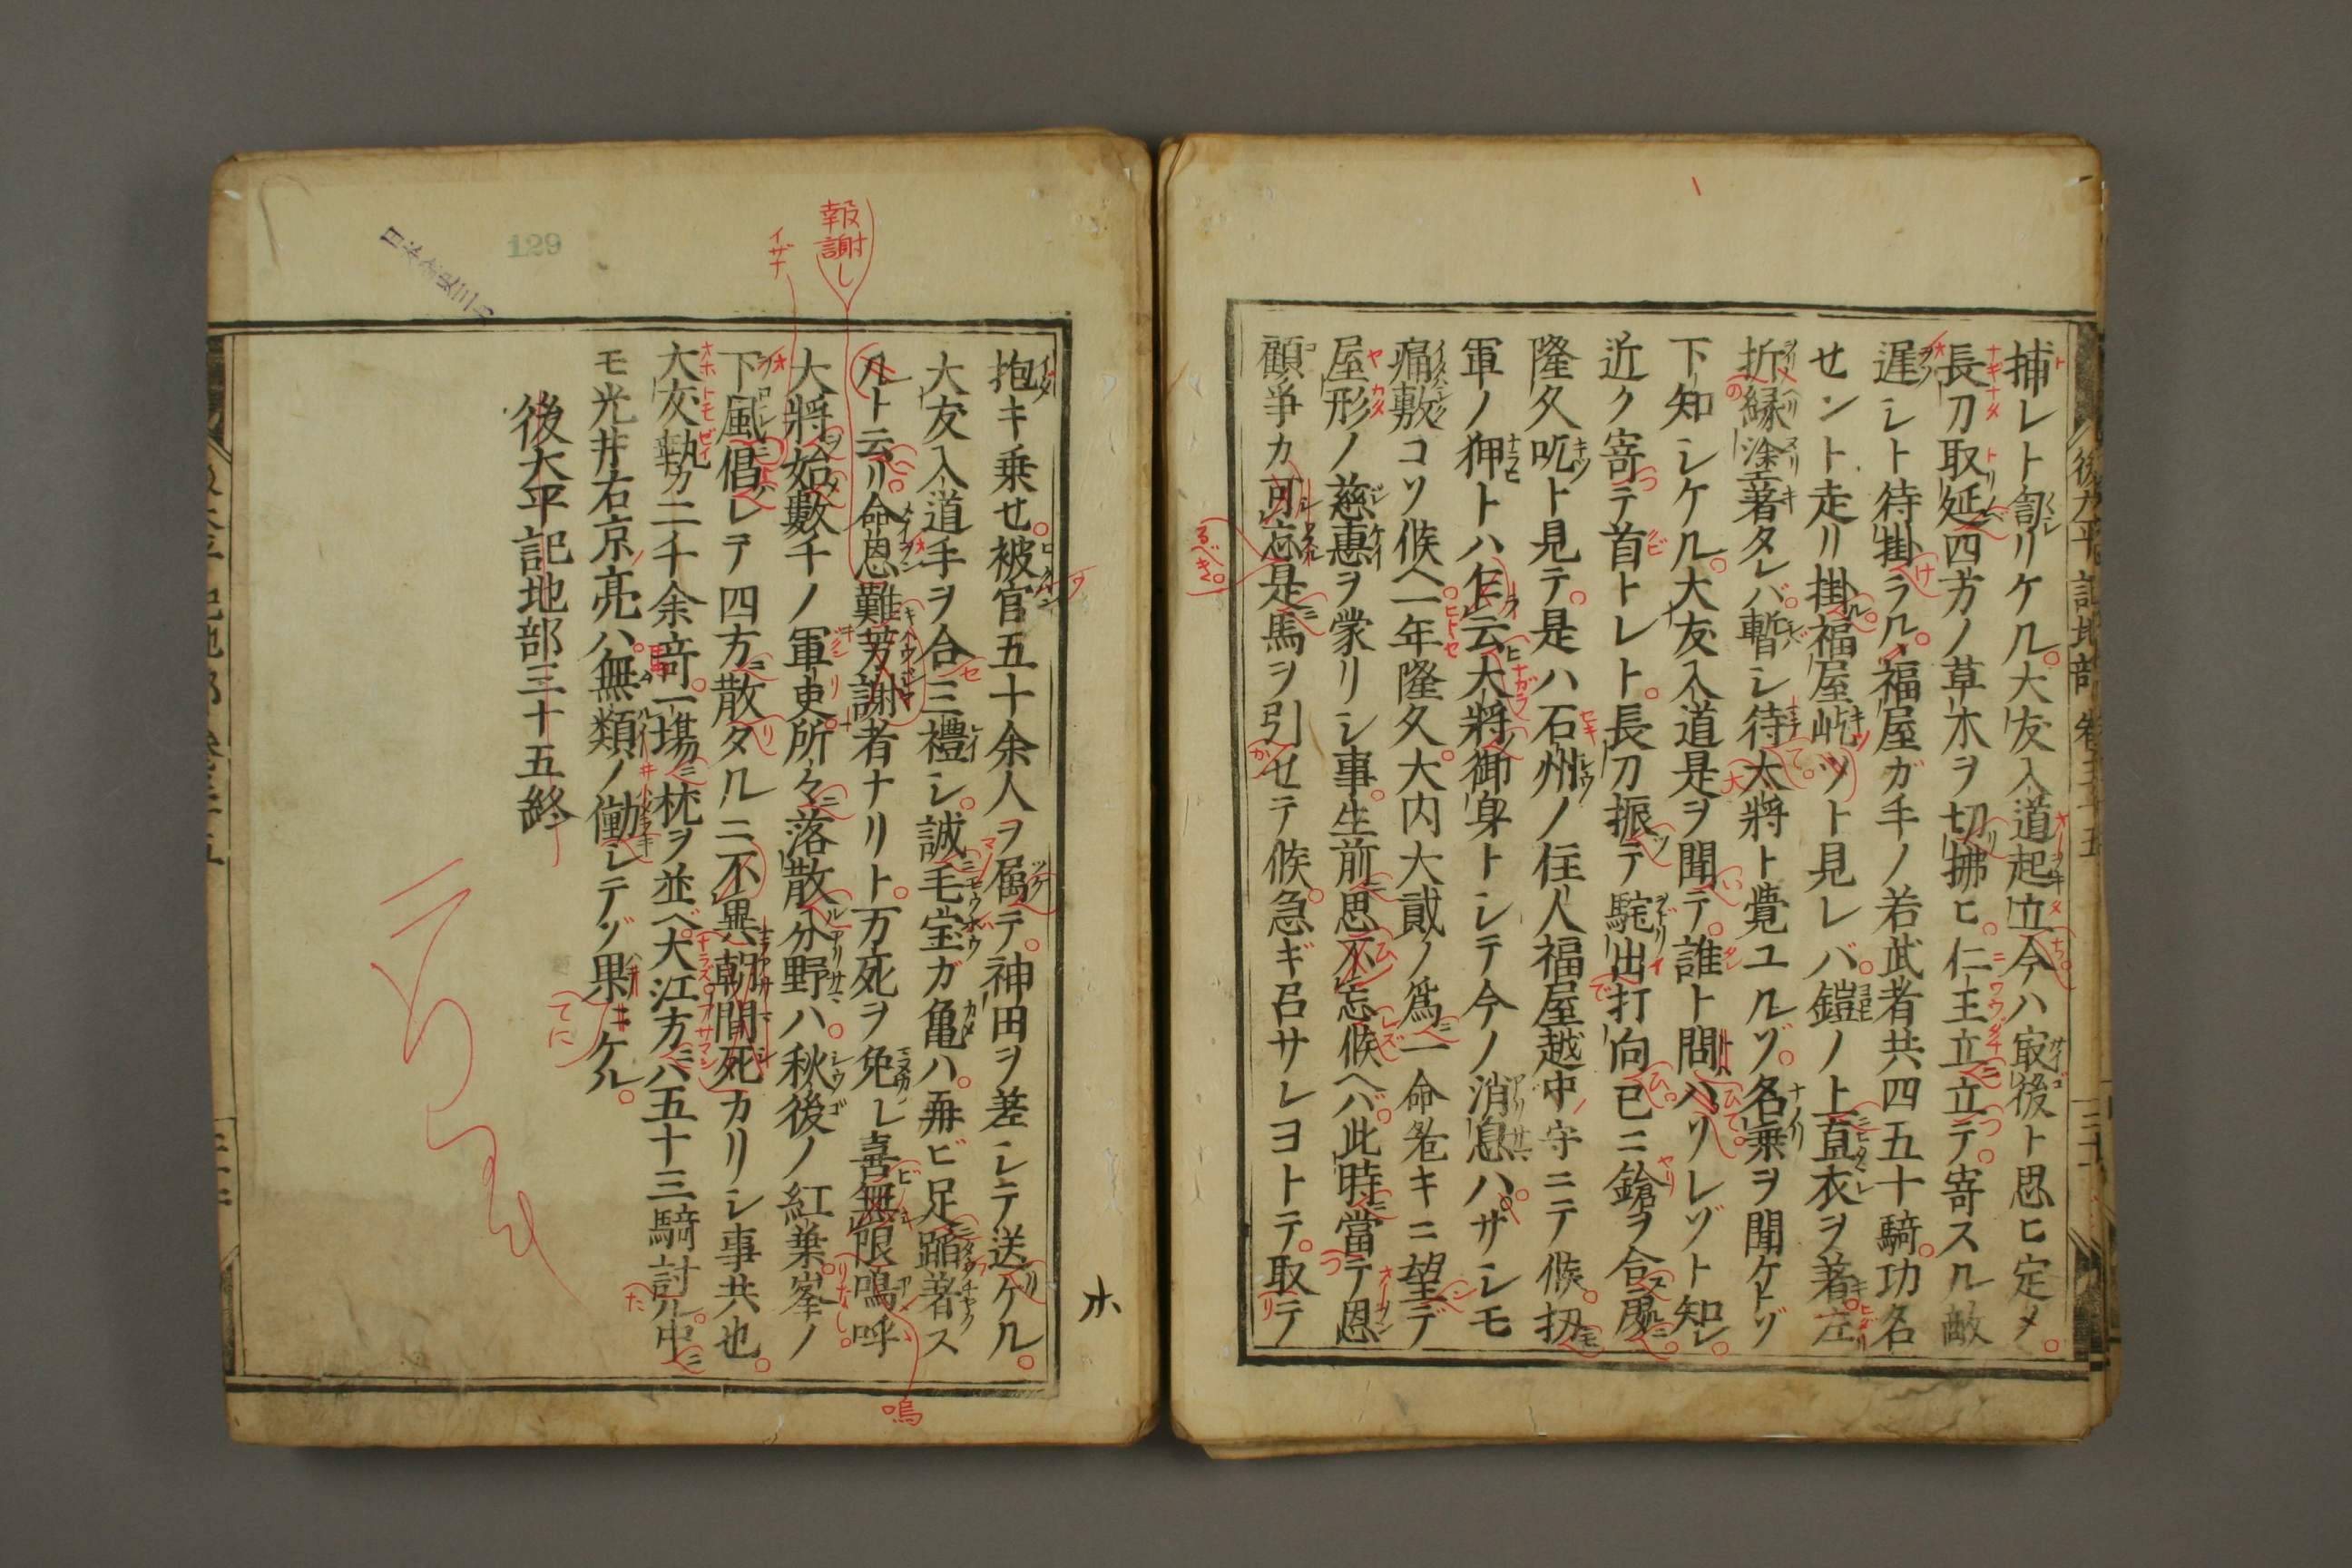 捕レト訇リケル大友入道起立今ハ㝡後ト思ヒ定メ
長刀取延四方ノ草木ヲ切拂ヒ仁王立立テ寄スル敵
遅シト待掛ラル福屋ガ手ノ若武者共四五十騎功名
せント走リ掛福屋屹ツト見レバ鎧ノ上直衣ヲ著左
折縁塗著タレバ暫シ待太將ト覺ユルゾ名乗ヲ聞ケトゾ
下知シケル大友入道是ヲ聞テ誰ト問ハリレゾト知レ
近ク寄テ首トレト長刀振テ駝出打向已ニ鎗ヲ合処
隆久吃ト見テ是ハ石州ノ住人福屋越中守ニテ候扨
軍ノ狎トハ乍云大將御身トシテ今ノ消息ハサシモ
痛敷コソ候ヘ一年隆久大内大貳ノ爲一命危キニ望デ
屋形ノ慈惠ヲ蒙リシ事生前思不忘候ヘバ此時當テ恩
顧爭カ可忘是馬ヲ引せテ候急ギ召サレヨトテ取テ
後太平記地部 卷三十五
抱キ乗せ被官五十余人ヲ属テ神田ヲ差シテ送ケル
大友入道手ヲ合三禮シ誠毛宝ガ亀ハ再ビ足蹈著ス
ルト云リ命恩難芳謝者ナリト万死ヲ免レ喜無限嗚呼
大將始數千ノ軍吏所々落散分野ハ秋後ノ紅葉峯ノ
下風倡レテ四方散タルニ不異朝間死カリシ事共也
大友勢カ二千余竒一場枕ヲ並ベ大江方ハ五十三騎討ル中
モ光井右京亮ハ無類ノ働シテゾ果ニケル
後太平記地部三十五終
報謝し
イザナ
嗚
るべき
てに
129
ホ